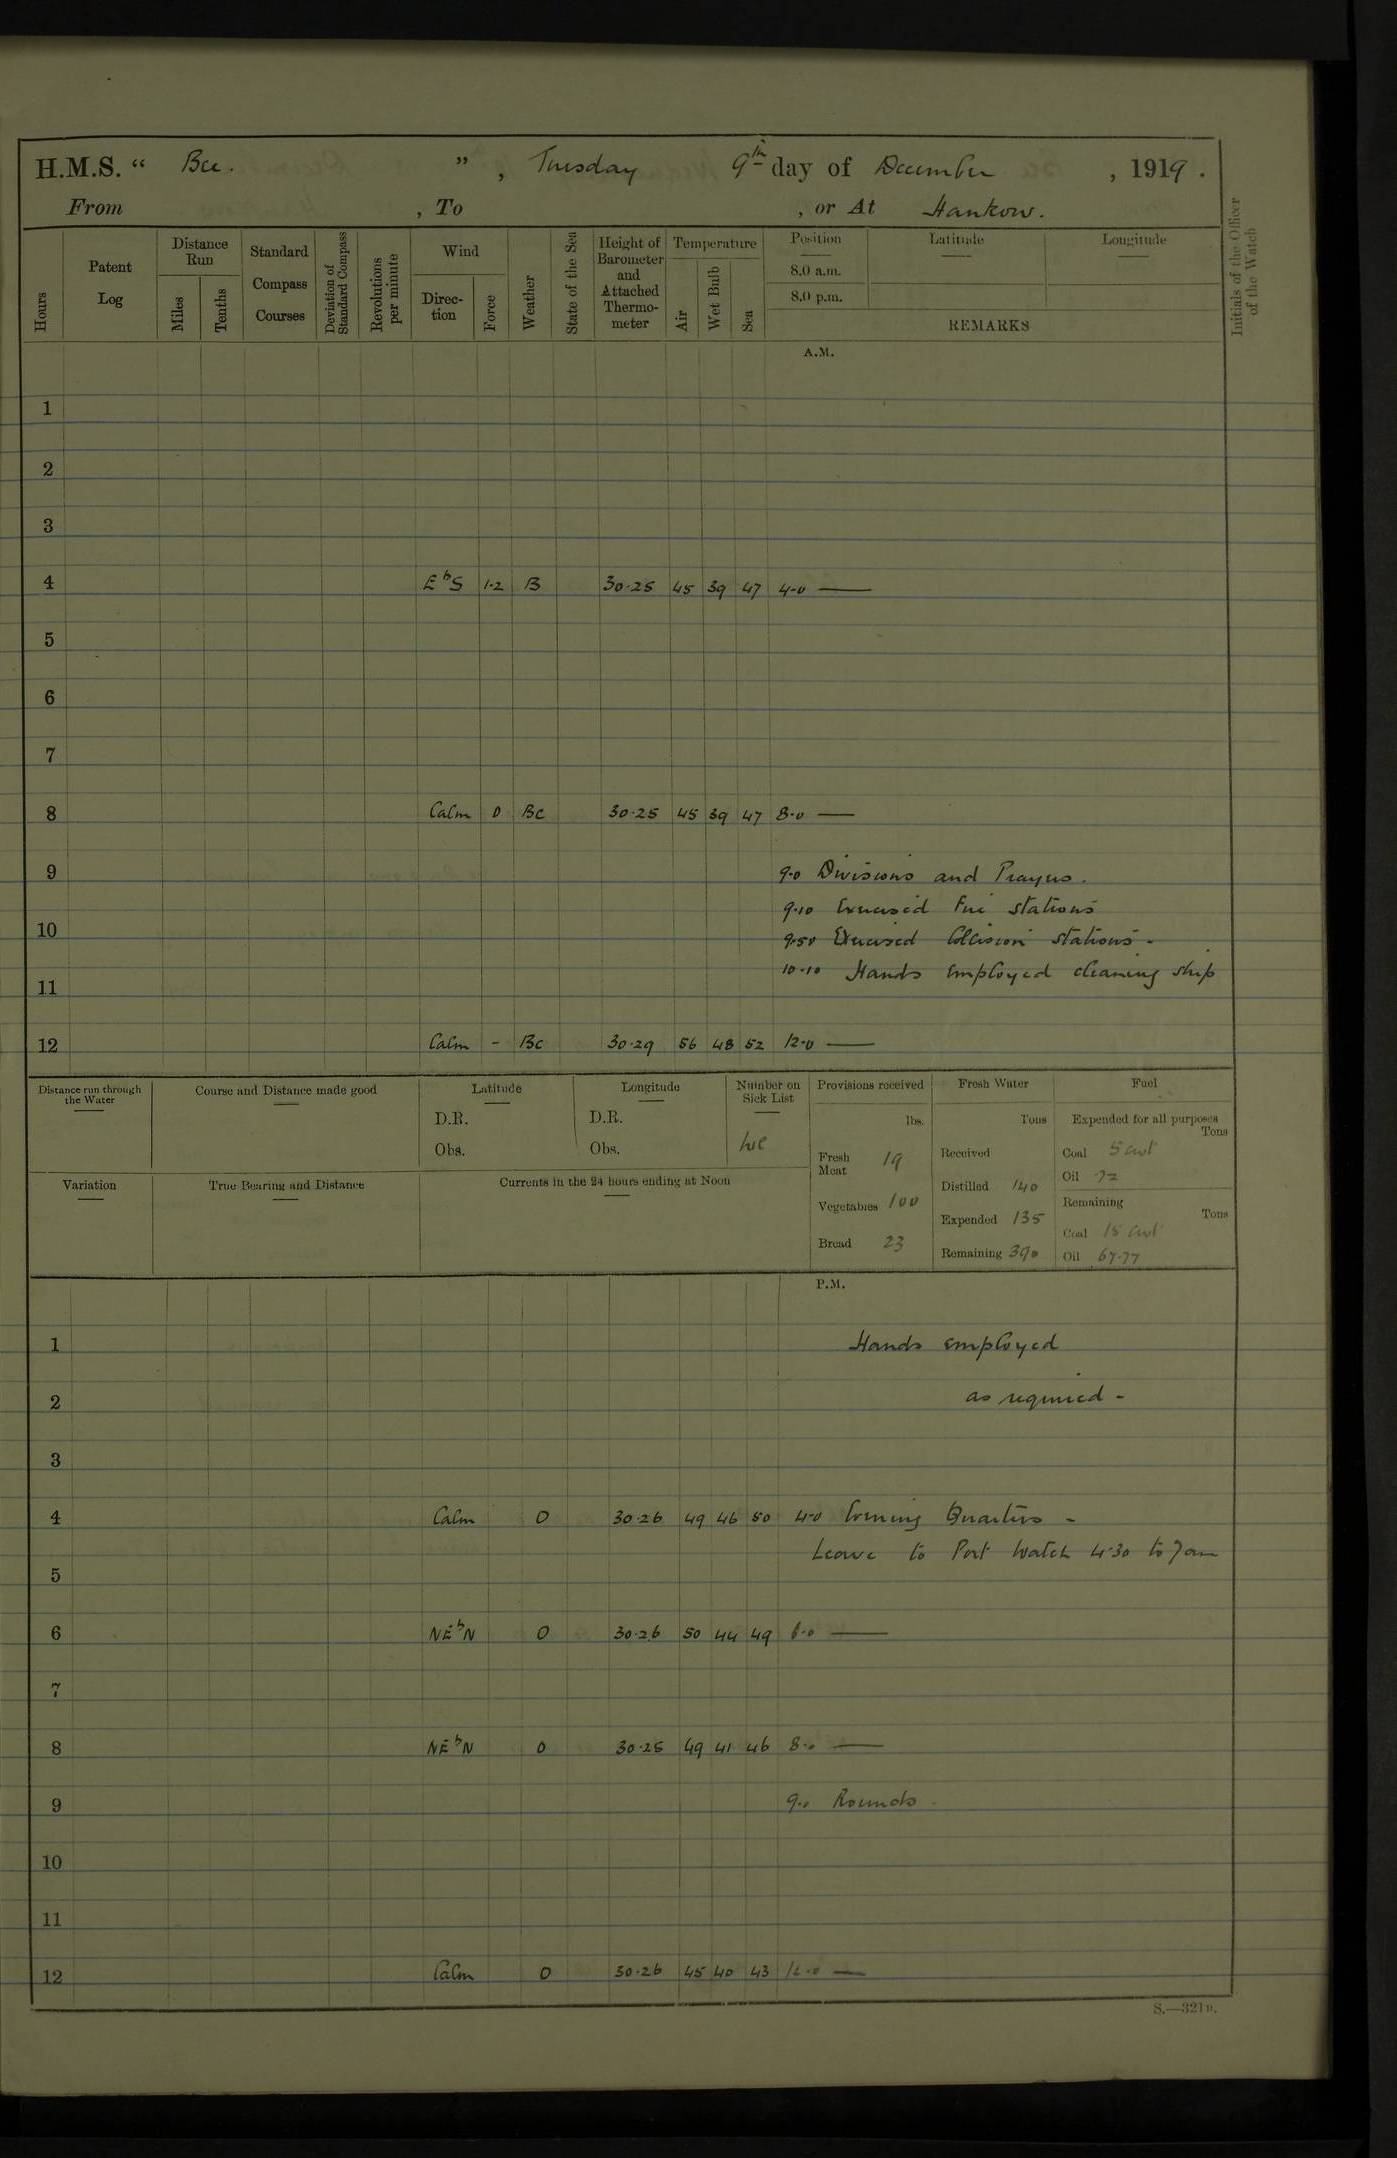 H.M.S. “ Bee. ”, Tuesday 9th day of December, 1919.
From , To , or At Hankow.
Hours
Patent Log
Distance Run
Miles
Tenths
Standard Compass Courses
Deviation of Standard Compass
Revolutions per minute
Wind
Direc-tion
Force
Weather
State of the Sea
Height of Barometer and Attached Thermo-meter
Temperature
Air
Wet Bulb
Sea
Position
8.0 a.m.
8.0 p.m.
Latitude
Longitude
REMARKS
Initials of the Officer of the Watch
A.M.
1
2
3
4 EbS 1·2 B 30·25 45 39 47 4-0 —
5
6
7
8 Calm 0 Bc 30·25 45 39 47 8·0 —
9 9·0 Divisions and Prayers.
9·10 Exercised Fire stations
10 9·50 Exercised Collision stations -
10·10 Hands employed cleaning ship
11
12 Calm - Bc 30·29 56 48 52 12·0 —
Distance run through the Water
Course and Distance made good
Latitude
D.R.
Obs.
Longitude
D.R.
Obs.
Number on Sick List
Provisions received
lbs.
Fresh Meat 19
Vegetables 100
Bread 23
Fresh Water
Tons
Received
Distilled 140
Expended 135
Remaining 390
Fuel
Expended for all purposes
Tons
Coal 5 cwt
Oil ·72
Remaining
Tons
Coal 15 cwt
Oil 67·77
Variation
True Bearing and Distance
Currents in the 24 hours ending at Noon
P.M.
1 Hands employed
2 as required -
3
4 Calm O 30·26 49 46 50 4-0 Evening Quarters -
Leave to Port Watch 4·30 to 7am
5
6 NEbN O 30·26 50 44 49 6·0 —
7
8 NEbN O 30·25 49 41 46 8·0 —
9 9·0 Rounds.
10
11
12 Calm O 30·26 45 40 43 12·0 —
S.—321B.